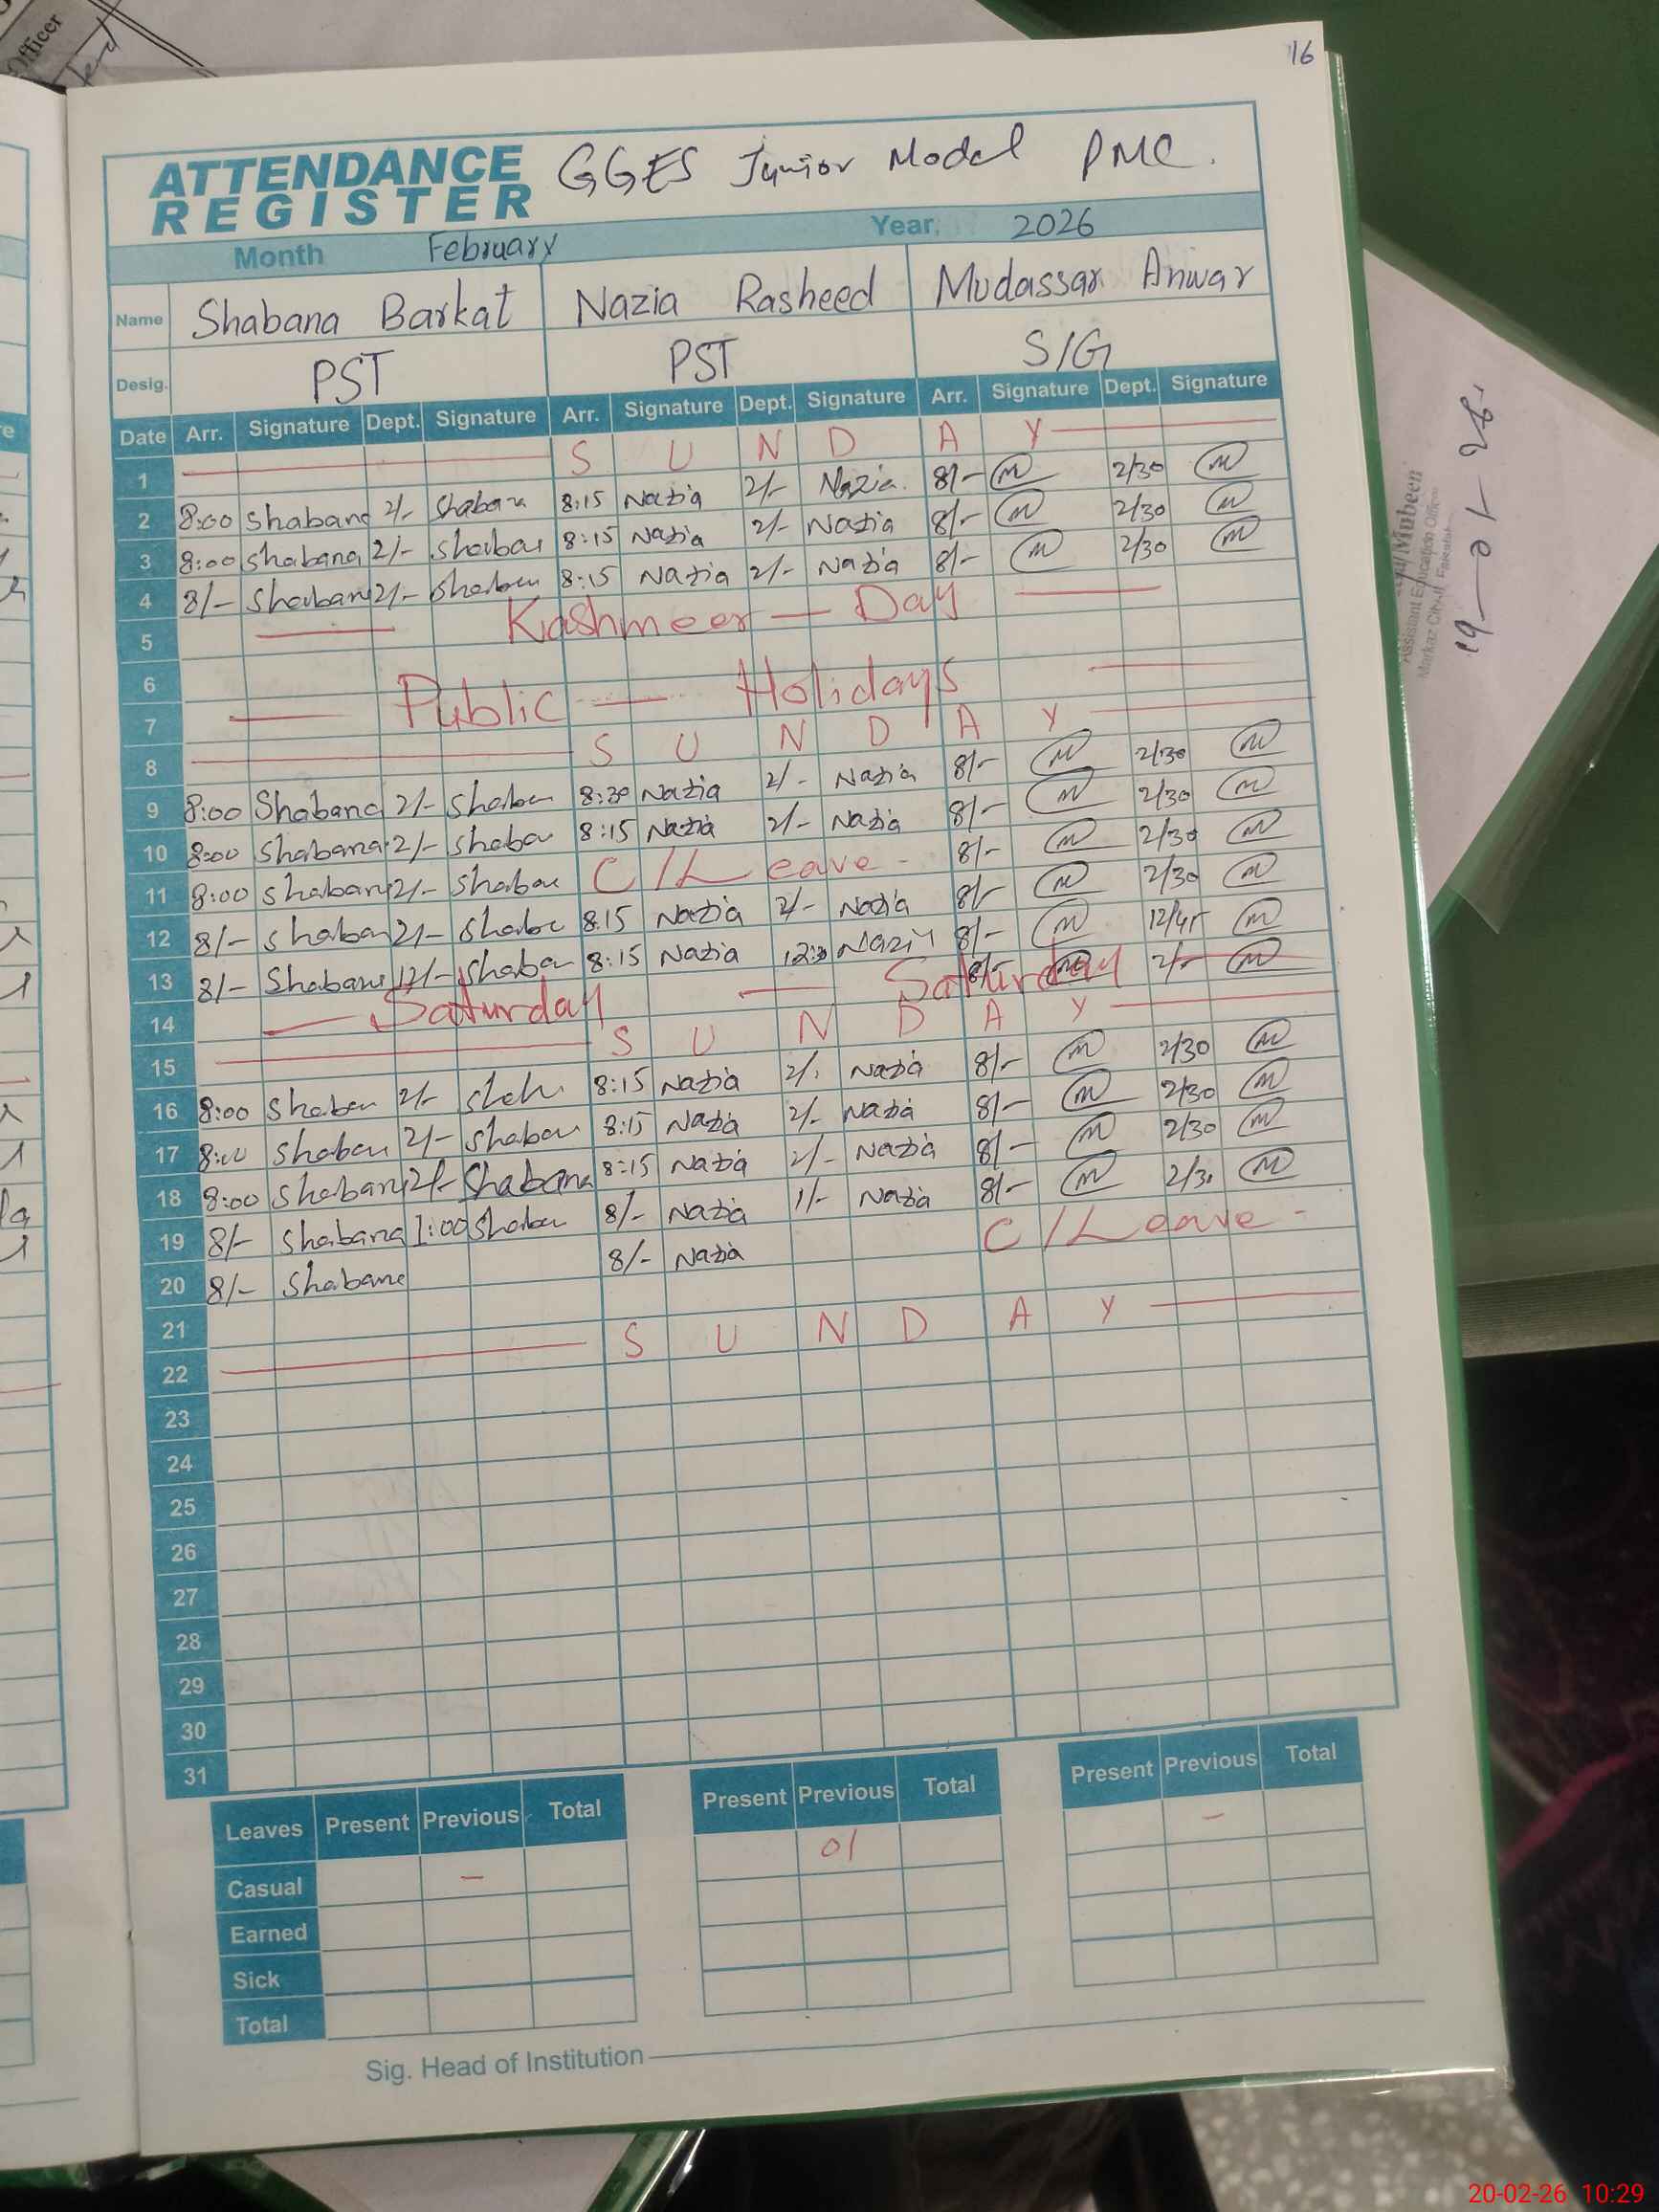 16
Officer
ATTENDANCE REGISTER GGES Junior Model PMC.
Month February Year. 2026
Name Shabana Barkat Nazia Rasheed Mudassar Anwar
Desig. PST PST S/G
Date Arr. Signature Dept. Signature Arr. Signature Dept. Signature Arr. Signature Dept. Signature
1 S U N D A Y
2 8:00 Shabana 2/- Shabana 8:15 Nazia 2/- Nazia 8/- M 2/30 M
3 8:00 Shabana 2/- Shabana 8:15 Nazia 2/- Nazia 8/- M 2/30 M
4 8/- Shabana 2/- Shabana 8:15 Nazia 2/- Nazia 8/- M 2/30 M
5 Kashmeer — Day
6
7 Public — Holidays
8 S U N D A Y
9 8:00 Shabana 2/- Shaban 8:30 Nazia 2/- Nazia 8/- M 2/30 M
10 8:00 Shabana 2/- Shaba 8:15 Nazia 2/- Nazia 8/- M 2/30 M
11 8:00 Shabana 2/- Shaba C/Leave - 8/- M 2/30 M
12 8/- Shaban 2/- Shaba 8:15 Nazia 2/- Nazia 8/- M 2/30 M
13 8/- Shabana 12/- Shaba 8:15 Nazia 12:30 Nazia 8/- M 12/45 M
14 Saturday — Saturday 8/- M 2/- M
15 S U N D A Y
16 8:00 Shaban 2/- 8:15 Nazia 2/- Nazia 8/- M 2/30 M
17 8:00 Shaban 2/- Shaban 8:15 Nazia 2/- Nazia 8/- M 2/30 M
18 8:00 Shabana 2/- Shabana 8:15 Nazia 2/- Nazia 8/- M 2/30 M
19 8/- Shabana 1:00 Shaba 8/- Nazia 1/- Nazia 8/- M 2/30 M
20 8/- Shabana 8/- Nazia C/Leave -
21
22 S U N D A Y
23
24
25
26
27
28
29
30
31
Leaves Present Previous Total Present Previous Total Present Previous Total
Casual - 01 -
Earned
Sick
Total
Sig. Head of Institution
Mubeen
Assistant Education Officer
19-01-26
20-02-26 10:29